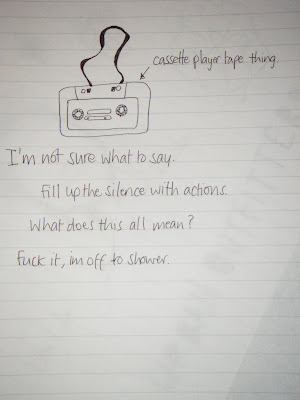 cassette player tape thing.
I'm not sure what to say.
Fill up the silence with actions.
What does this all mean?
Fuck it, im off to shower.